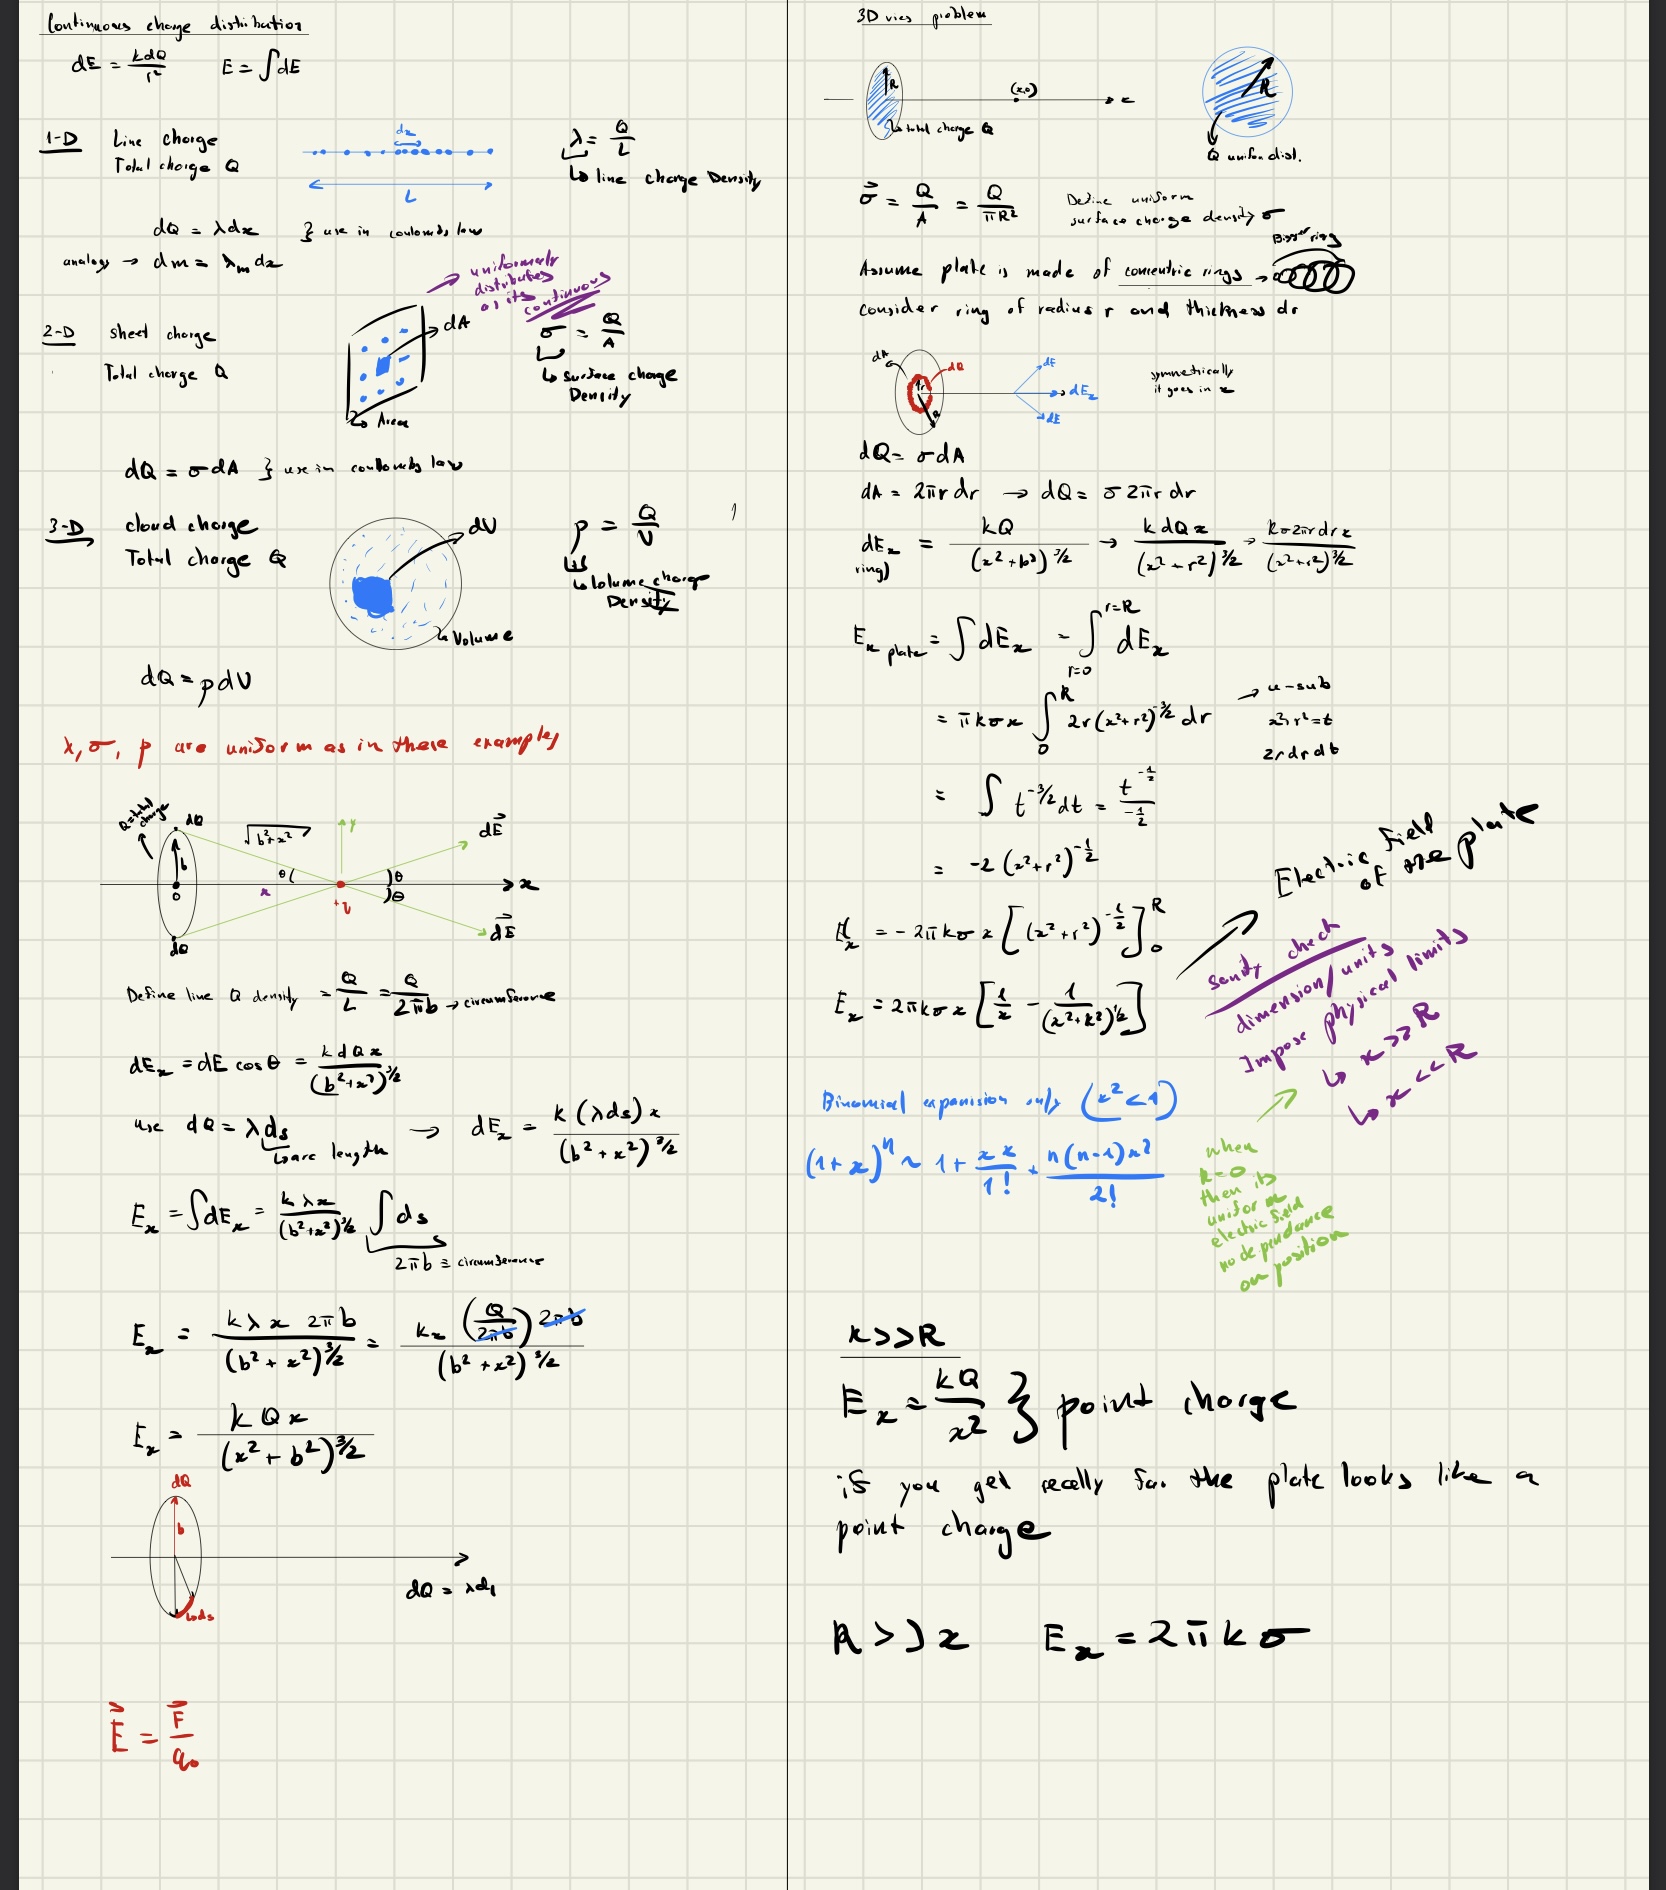 Continuous charge distribution
dE = kdQ/r² E = ∫dE
1-D Line charge
Total charge Q
dx
L
λ = Q/L
↳ line charge Density
dQ = λdx } use in coulombs law
analogy → dm = λm dx
→ uniformaly
distributes
continuous
2-D sheet charge
Total charge Q
dA
↳ Area
σ = Q/A
↳ surface charge
Density
dQ = σdA } use in coulombs law
3-D cloud charge
Total charge Q
dV
↳ Volume
ρ = Q/V
↳ Volume charge
Density
dQ = ρdV
λ, σ, ρ are uniform as in these examples
Q = total
charge
dQ
b
0
dQ
√b²+x²
y
θ
x
+q
θ
θ
dE⃗
x
dE⃗
Define line Q density = Q/L = Q/2πb → circumference
dEx = dE cosθ = k dQ x/(b²+x²)^3/2
use dQ = λds → dEx = k(λds)x/(b²+x²)^3/2
↳ arc length
Ex = ∫dEx = kλx/(b²+x²)^3/2 ∫ds
2πb = circumference
Ex = kλx 2πb/(b²+x²)^3/2 = kx (Q/2πb) 2πb/(b²+x²)^3/2
Ex = kQx/(x²+b²)^3/2
dQ
b
↳ds
dQ = λds
E⃗ = F⃗/q₀
3D problem
R
↳ total charge Q
(x,0)
x
R
Q unifom dist.
σ⃗ = Q/A = Q/πR²
Define uniform
surface charge density σ
Bigger ring
Assume plate is made of concentric rings →
consider ring of radius r and thickness dr
dA
dQ
r
R
dE
dEx
dE
symmetrically
it goes in x
dQ = σdA
dA = 2πr dr → dQ = σ2πr dr
dEx = kQ/(x²+b²)^3/2 → k dQ x/(x²+r²)^3/2 → kσ2πr dr x/(x²+r²)^3/2
ring)
Ex plate = ∫dEx = ∫ r=0 r=R dEx
= πkσx ∫ 0 R 2r(x²+r²)^-3/2 dr
→ u-sub
x²+r²=t
2rdr dt
= ∫ t^-3/2 dt = t^-1/2/-1/2
= -2 (x²+r²)^-1/2
Ex = -2πkσx [(x²+r²)^-1/2] 0 R
Ex = 2πkσx [1/x - 1/(x²+R²)^1/2]
Electric Field
of the plate
sanity check
dimension/units
Impose physical limits
↳ x>>R
↳ x<<R
Binomial expansion only (x²<1)
(1+x)^n ~ 1 + xx/1! + n(n-1)x²/2!
when
R=0
then its
uniform
electric field
no dependance
on position
x>>R
Ex = kQ/x² } point charge
if you get really far the plate looks like a
point charge
R>>x Ex = 2πkσ